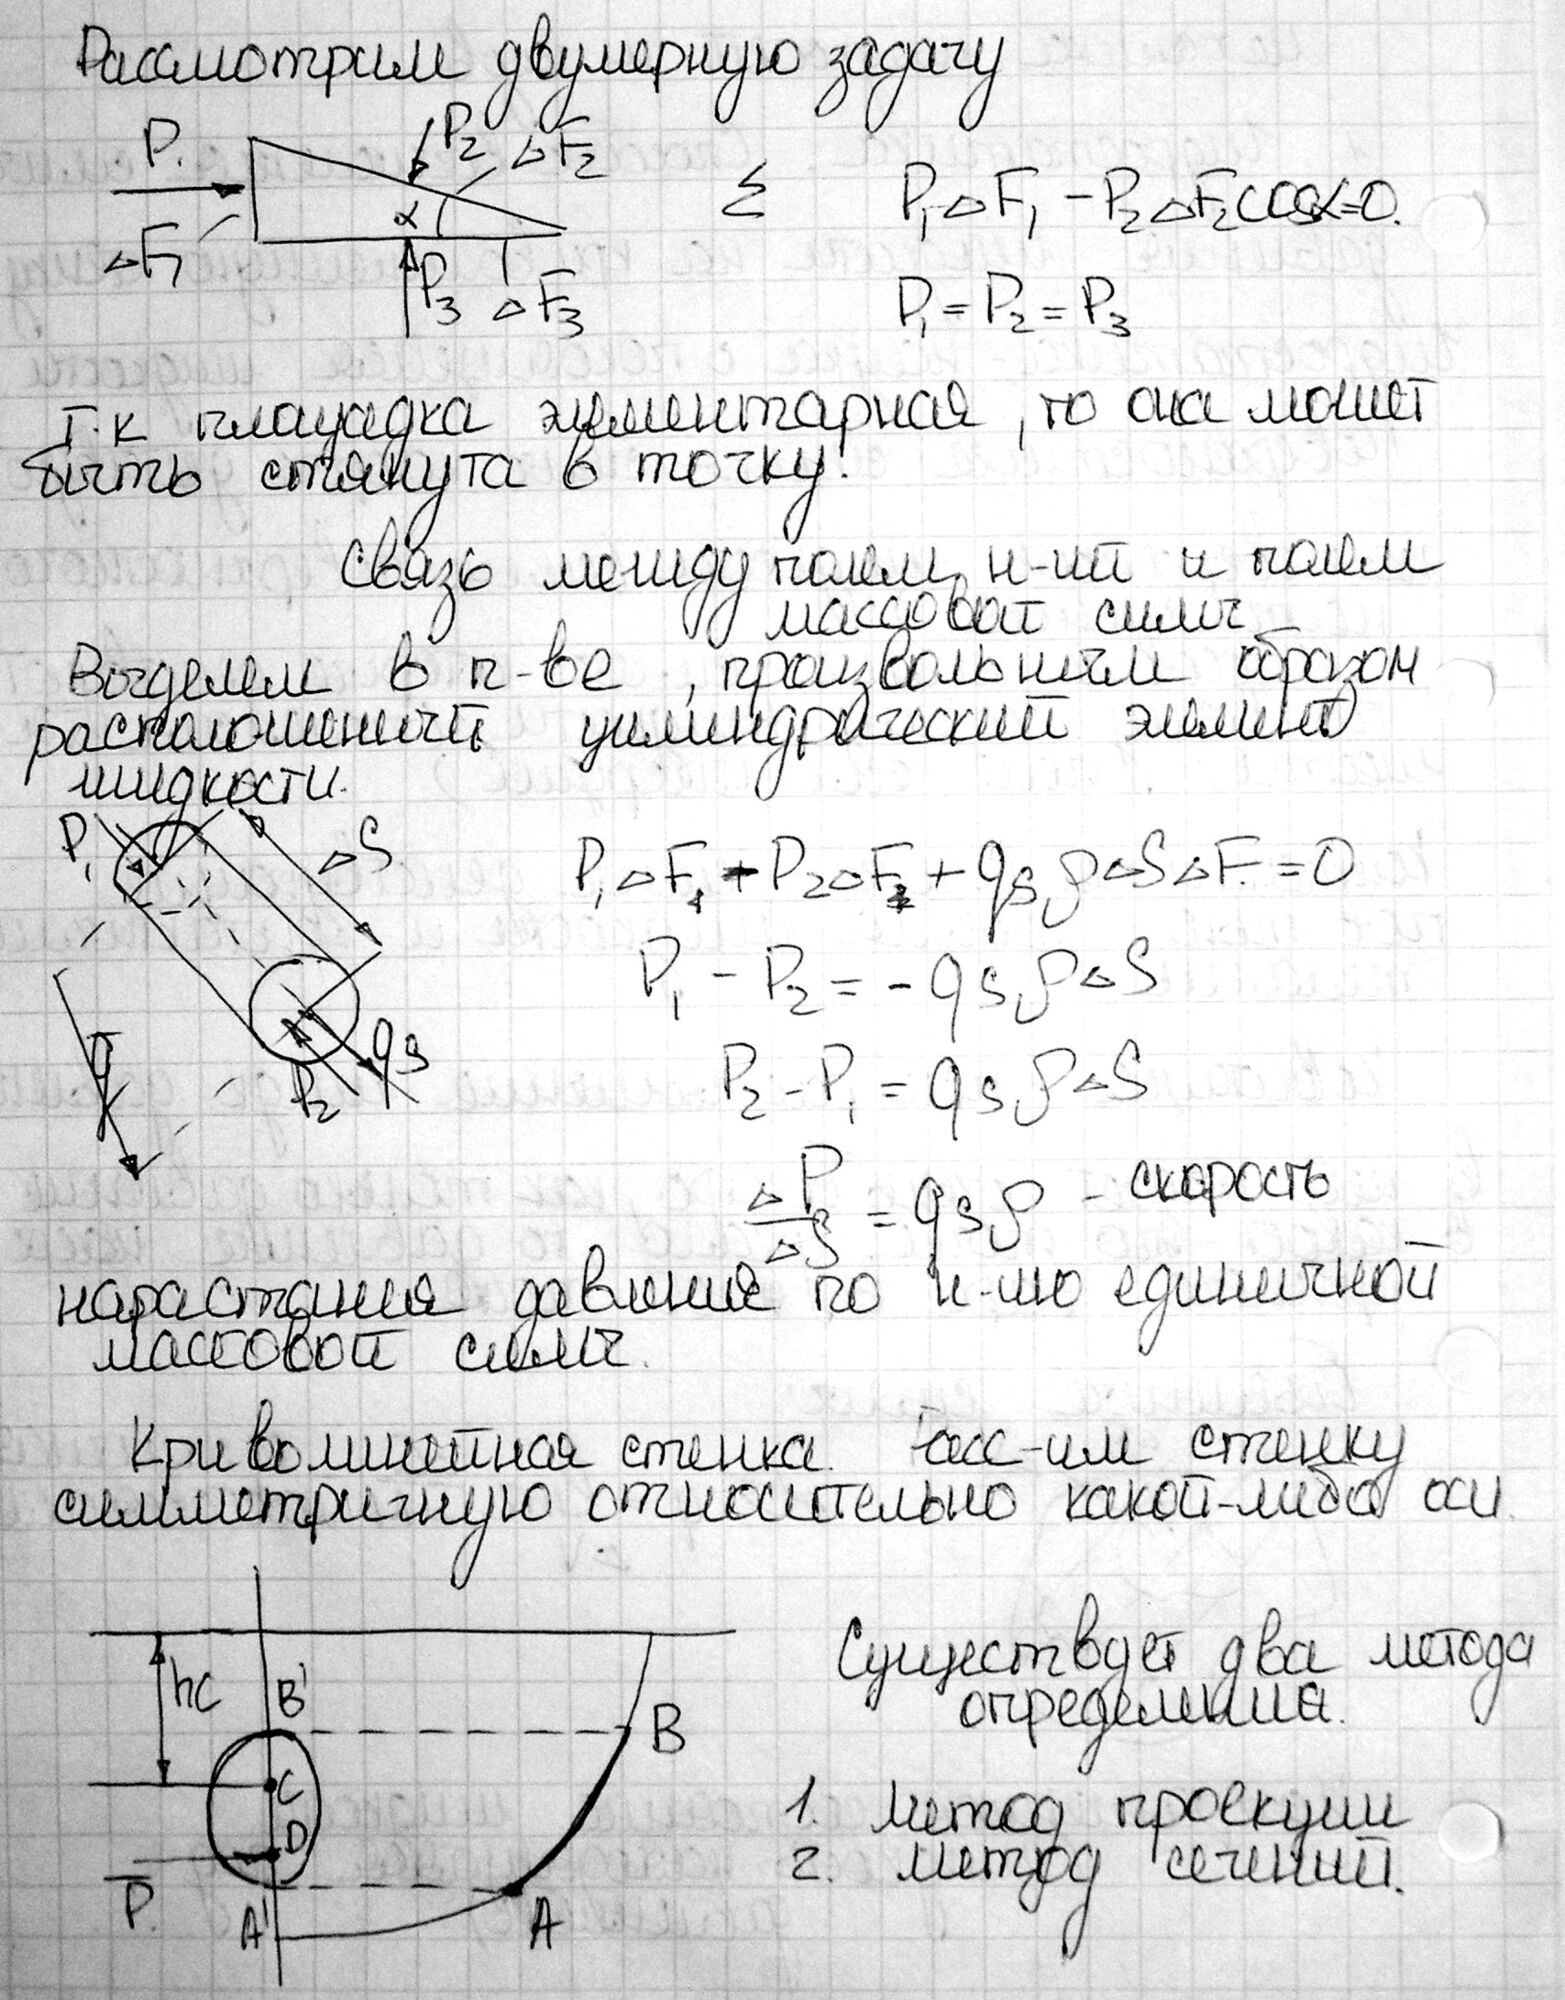 Рассмотрим двумерную задачу
P₁ P₂ ΔF₂
α
ΔF₁ P₃ ΔF₃
Σ P₁ΔF₁ - P₂ΔF₂cosα=0.
P₁ = P₂ = P₃
т.к площадка элементарная, то она может
быть стянута в точку.
Связь между полем н-ий и полем
массовой силы
Выделем в п-ве, произвольным образом
расположенный цилиндрический элемент
жидкости.
P₁ ΔS
q̄ P₂ qs
P₁ΔF₁ - P₂ΔF₂ + qsρΔSΔF = 0
P₁ - P₂ = -qsρΔS
P₂ - P₁ = qsρΔS
ΔP/ΔS = qsρ - скорость
нарастания давление по н-ию единичной
массовой силы.
Криволинейная стенка. Расс-им стенку
симметричную относительно какой-либо оси.
hc B' B
C
D
P̄. A' A
Существует два метода
определения.
1. метод проекции
2. метод сечений.